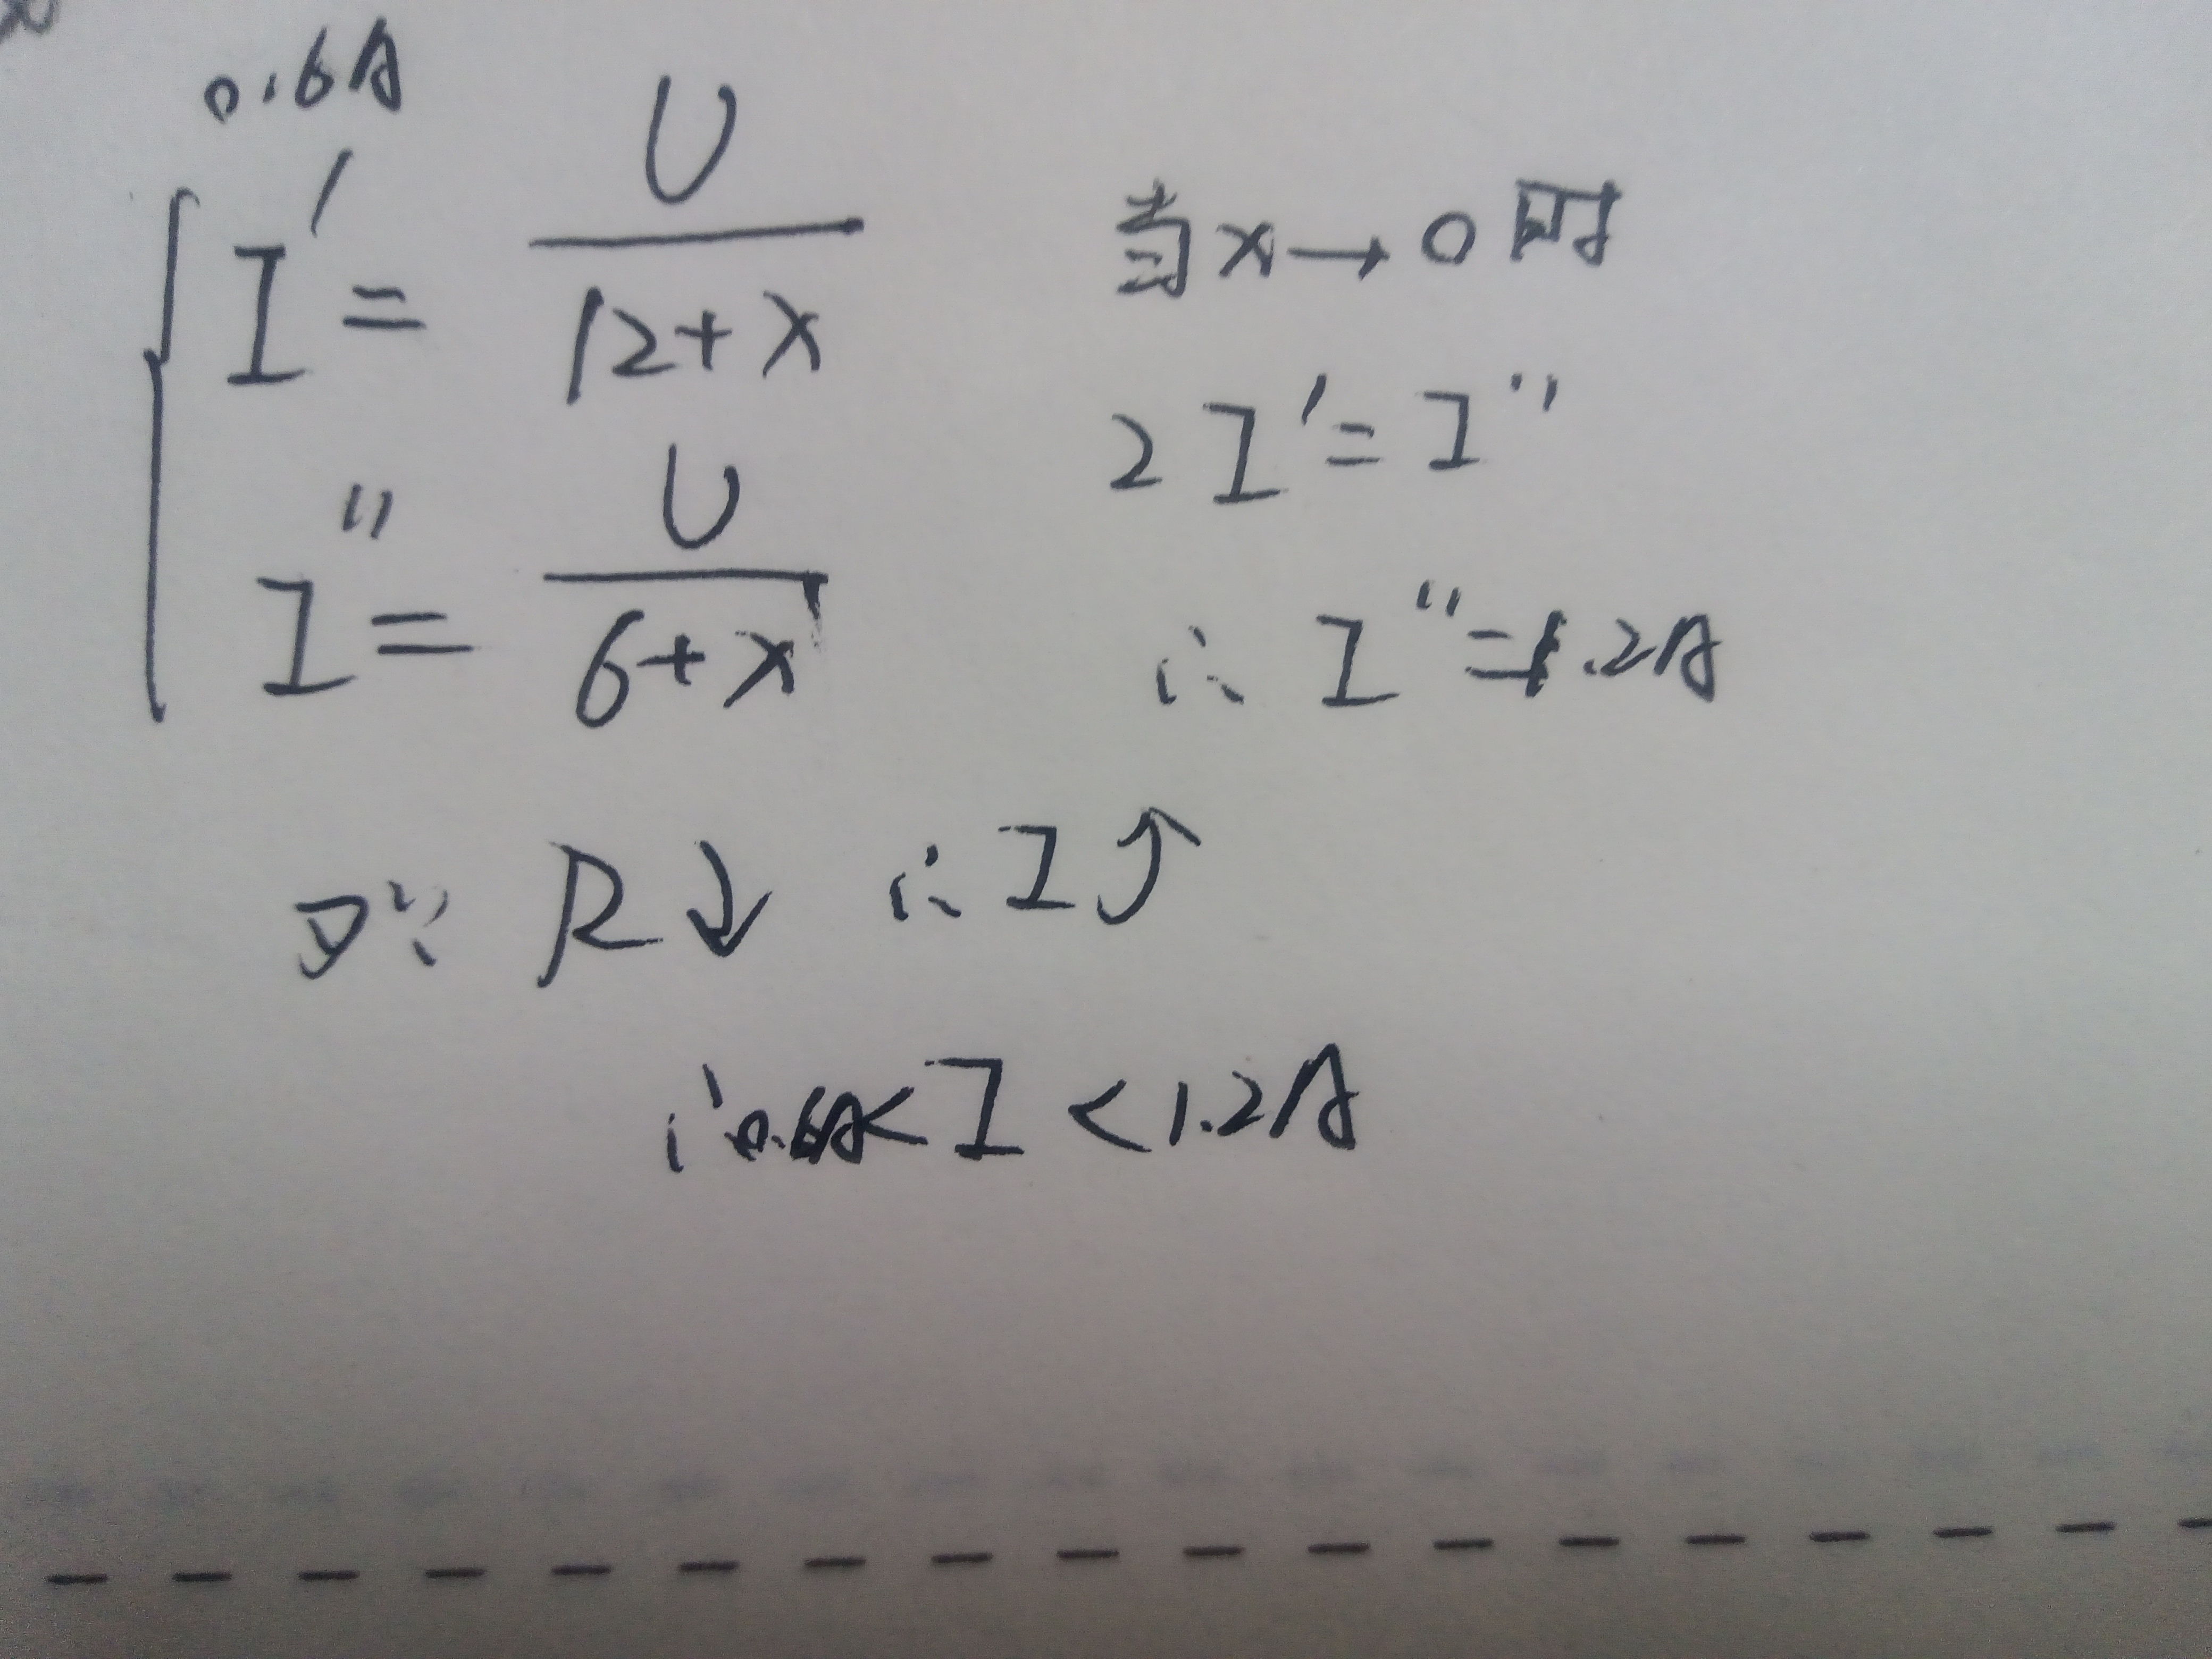 0.6A
I' = U/(12+x)
I'' = U/(6+x)
当x→0时
2I'=I''
∴ I''=1.2A
又∵ R↓ ∴ I↑
∴0.6A<I<1.2A